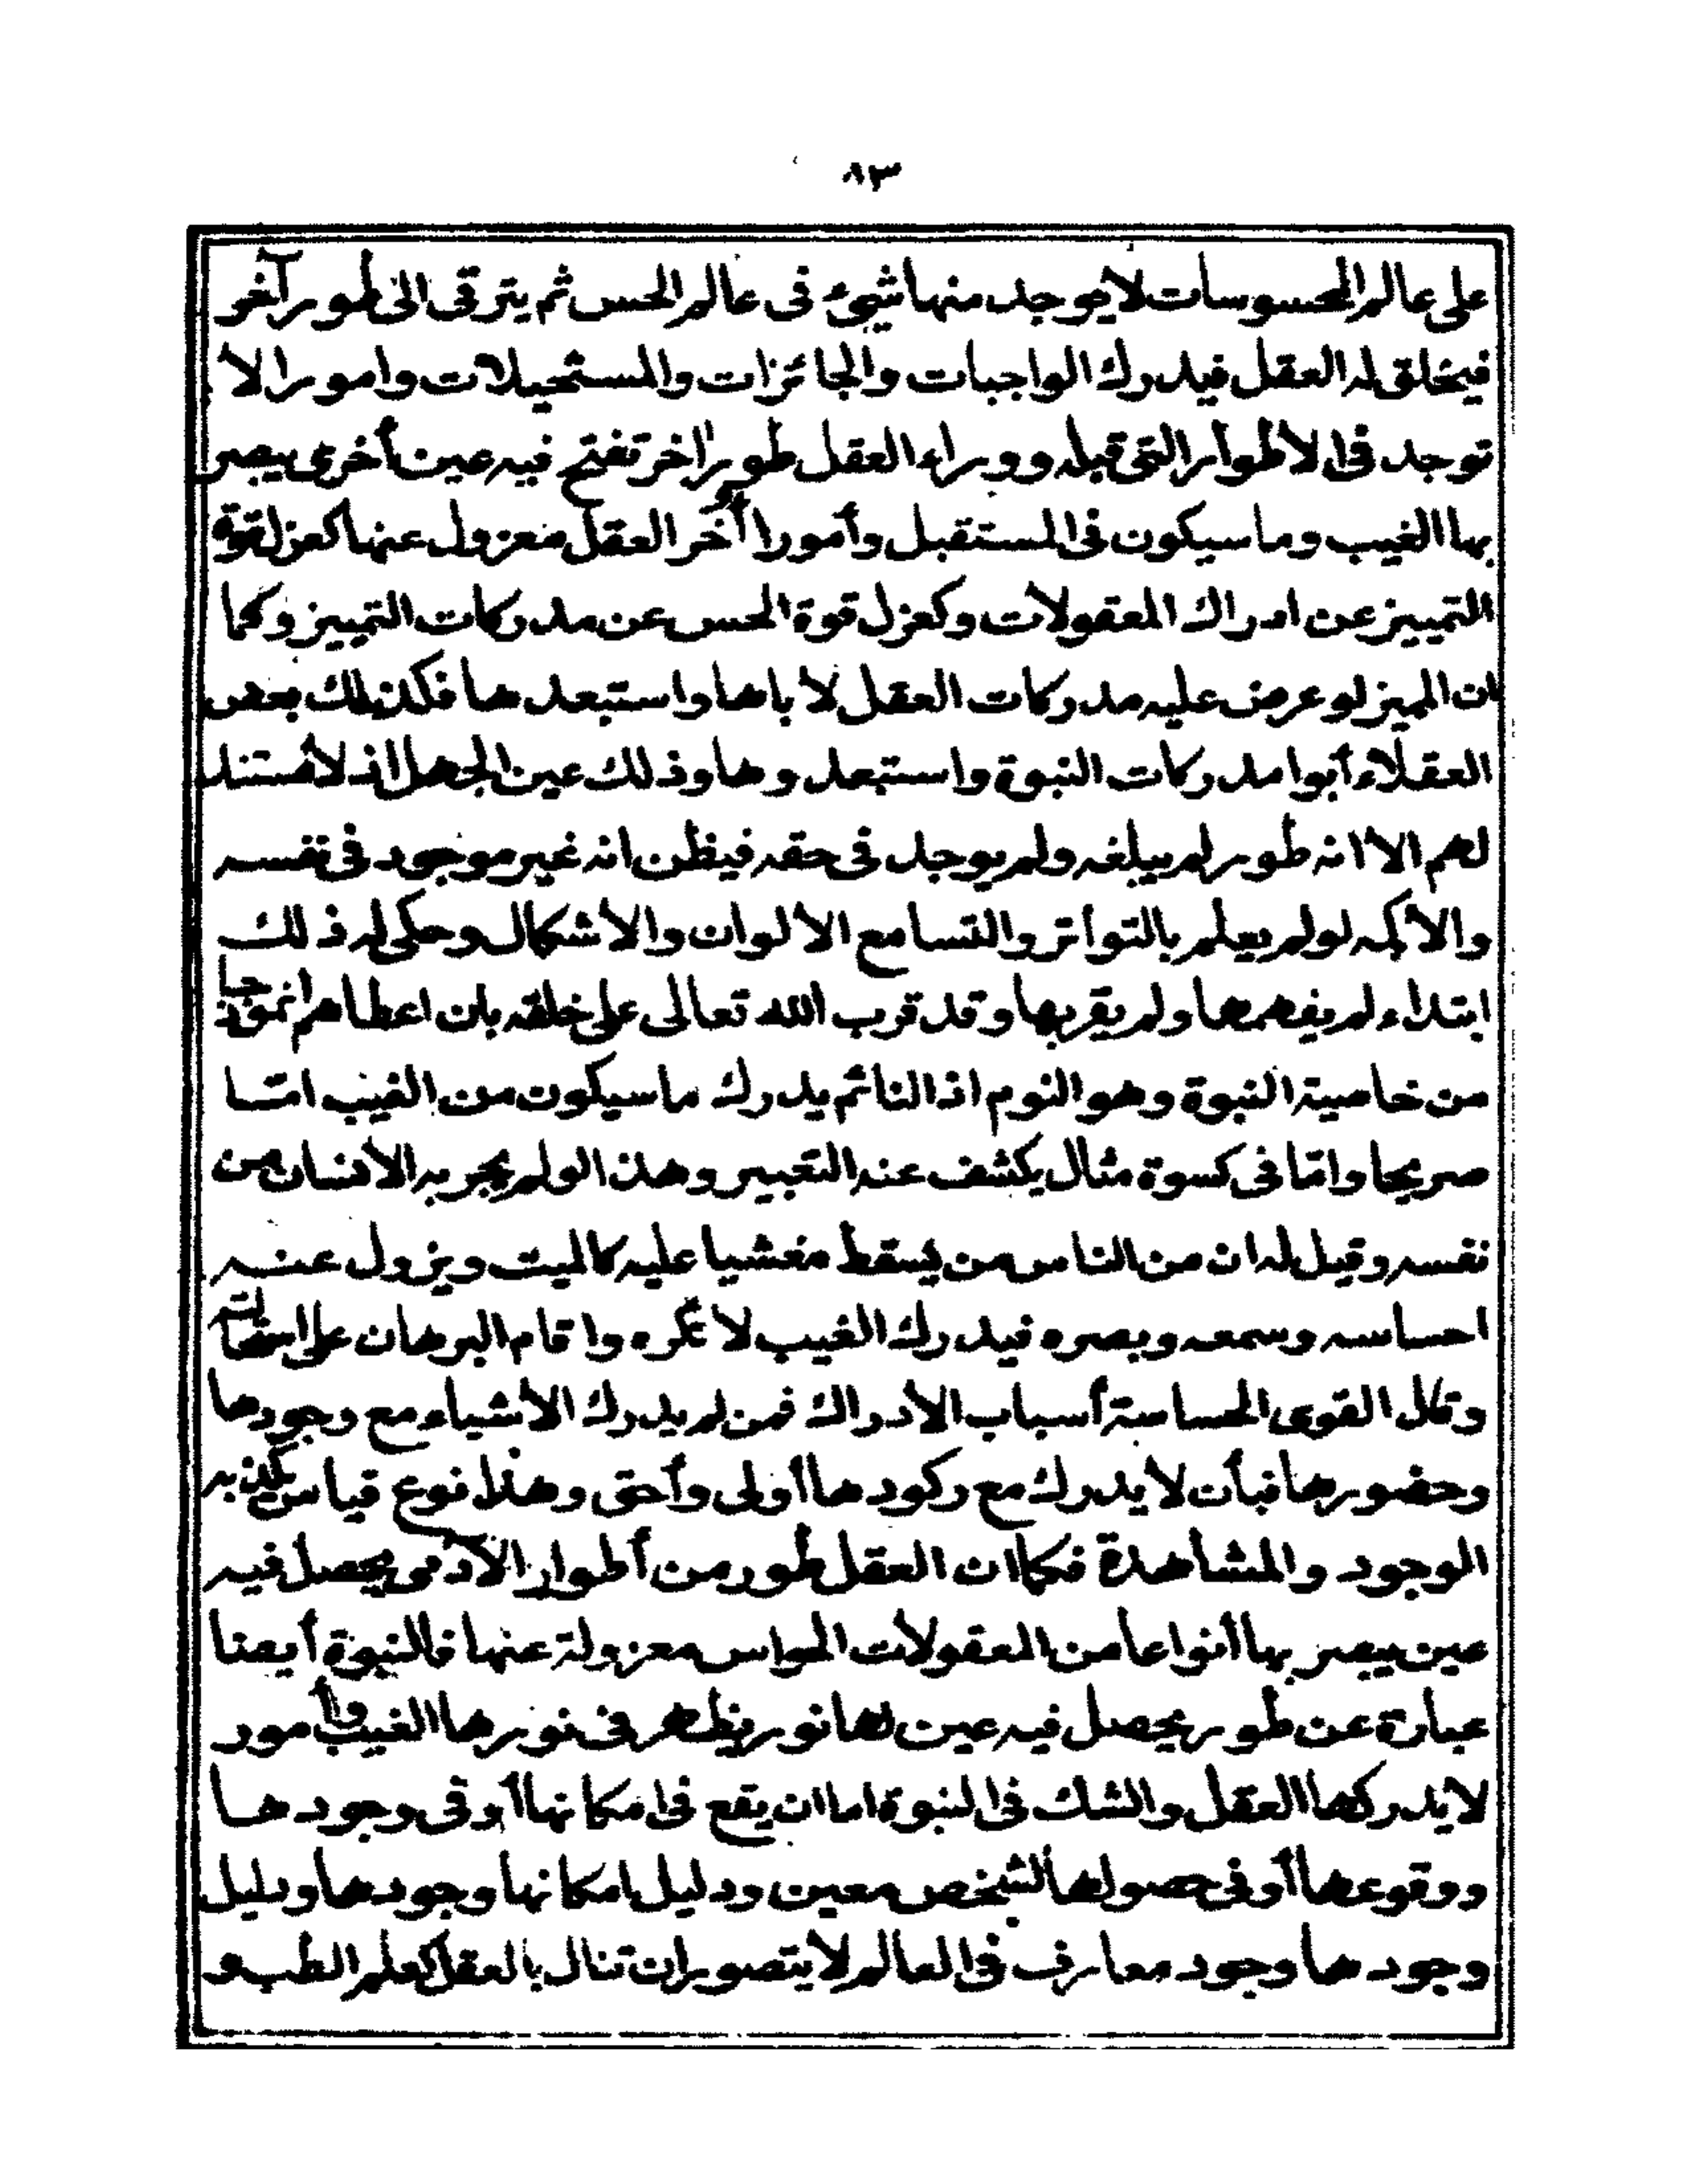 ٨٣
على عالم المحسوسات لا يوجد منها شيئ فى عالم الحس ثم يترقى الى طور آخر
فيخلق له العقل فيدرك الواجبات والجائزات والمستحيلات وامورا لا
توجد فى الأطوار التى قبله ووراء العقل طور اخر تفتح فيه عين أخرى يبصر
بها الغيب وما سيكون فى المستقبل وأمورا أخر العقل معزول عنها كعزل قوة
التمييز عن ادراك المعقولات وكعزل قوة الحس عن مدركات التمييز وكما
ان المميز لو عرض عليه مدركات العقل لأباها واستبعدها فكذلك بعض
العقلاء أبوا مدركات النبوة واستبعدوها وذلك عين الجهل اذ لا مستند
لهم الا انه طور لم يبلغه ولم يوجد فى حقه فيظن انه غير موجود فى نفسه
والأكمه لو لم يعلم بالتواتر والتسامع الألوان والأشكال وحكى له ذلك
ابتداء لم يفهمها ولم يقربها وقد قرب الله تعالى على خلقه بان اعطاهم انموذجا
من خاصية النبوة وهو النوم اذ النائم يدرك ما سيكون من الغيب امّا
صريحا وامّا فى كسوة مثال يكشف عنه التعبير وهذا لو لم يجربه الأنسان من
نفسه وقيل له ان من الناس من يسقط مغشيا عليه كالميت ويزول عنه
احساسه وسمعه وبصره فيدرك الغيب لأنكره واقام البرهان على استحالته
وقال القوى الحساسة أسباب الأدراك فمن لم يدرك الأشياء مع وجودها
وحضورها فبأن لا يدرك مع ركودها أولى وأحق وهذا نوع قياس يكذبه
الوجود والمشاهدة فكما ان العقل طور من أطوار الآدمى يحصل فيه
عين يبصر بها أنواعا من المعقولات الحواس معزولة عنها فالنبوة أيضا
عبارة عن طور يحصل فيه عين لها نور يظهر فى نورها الغيب وأمور
لا يدركها العقل والشك فى النبوة اما ان يقع فى امكانها أو فى وجودها
ووقوعها أو فى حصولها لشخص معين ودليل امكانها وجودها ودليل
وجودها وجود معارف فى العالم لا يتصور ان تنال بالعقل كعلم الطب و